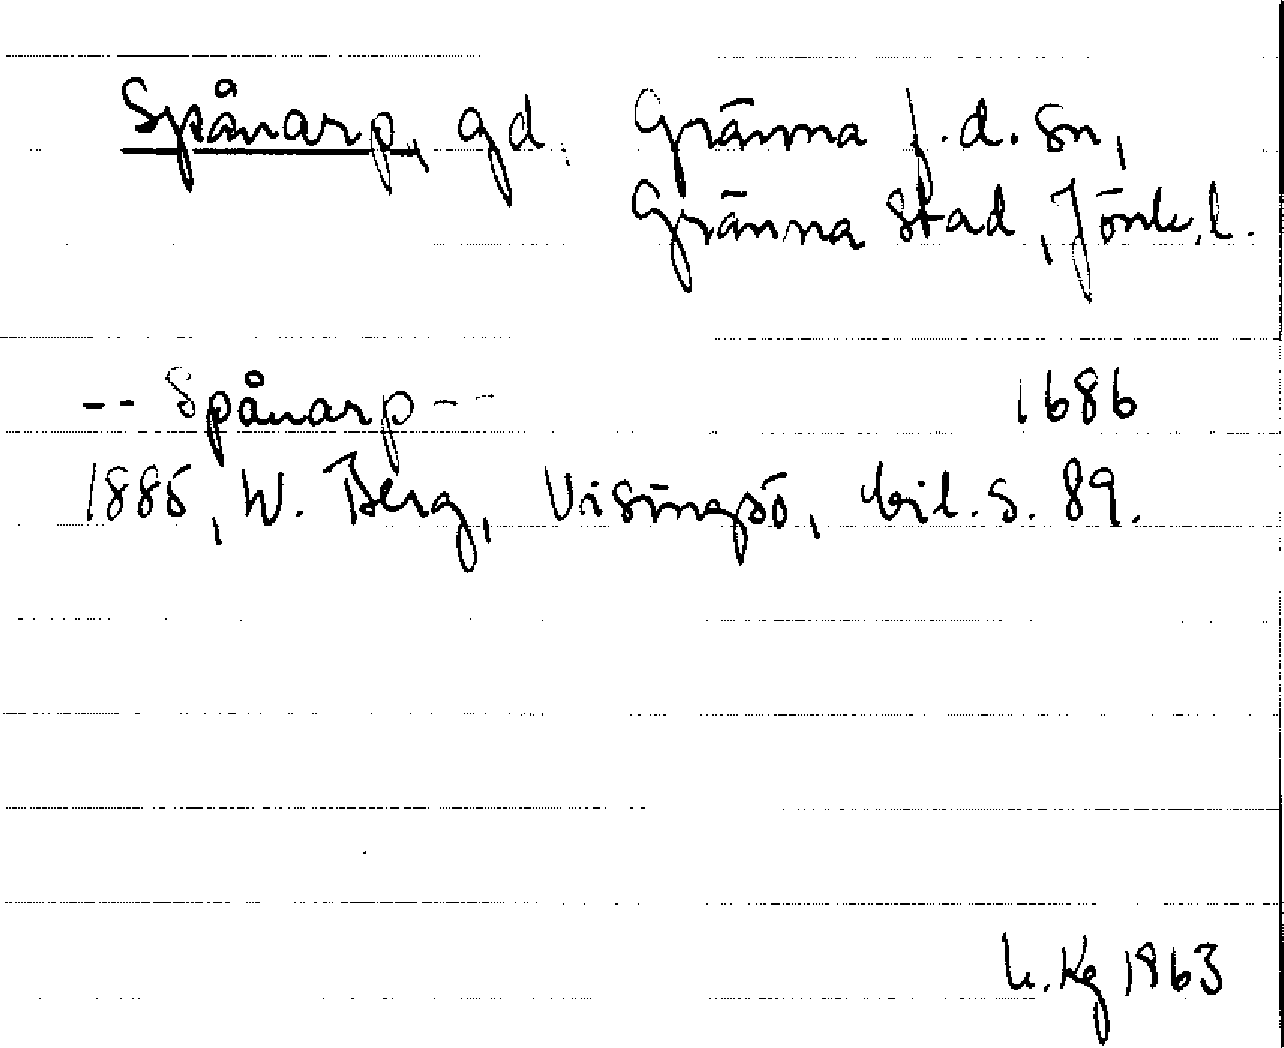 Spånarp, gd. Gränna f.d. sn,
Gränna stad, Jönk. l.
-- Spånarp -- 1686
1885, W. Berg, Visingsö, bil. s. 89.
L. Kg 1963